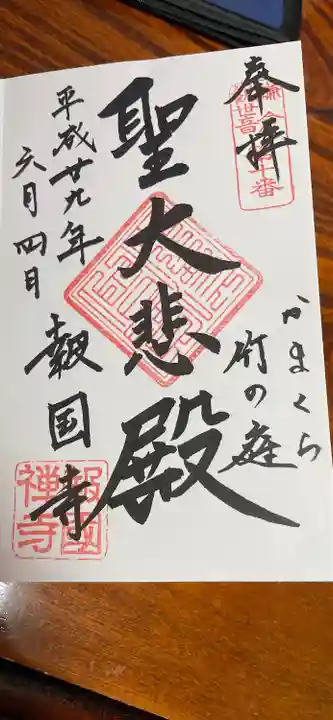 奉拝
かまくら
竹の庭
聖大悲殿
平成廿九年
六月四日
報国寺
報國
禅寺